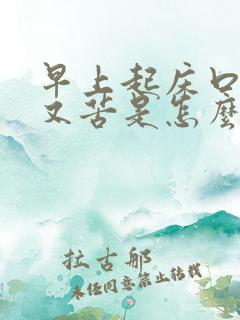 早上起床口
又苦是怎麼
拉古邮
未經同意禁止转载